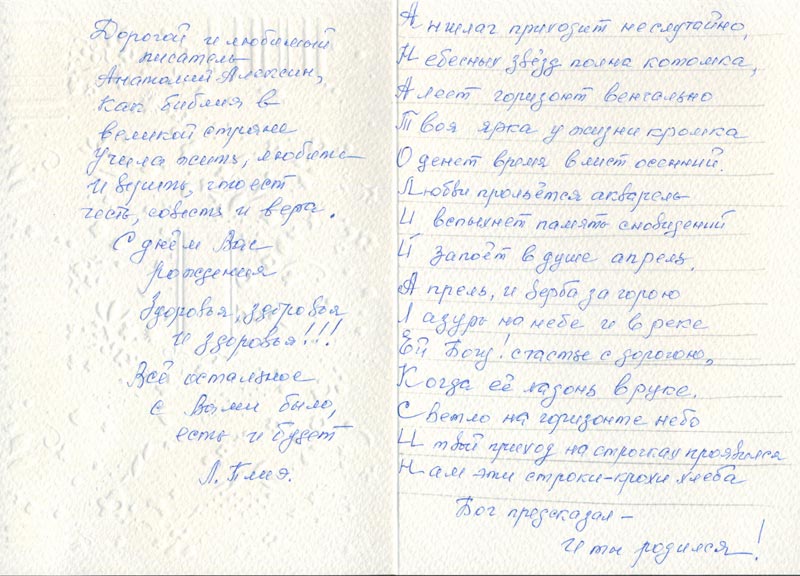 Дорогой и любимый
писатель
Анатолий Алексин,
Как библия в
великой стране
Учила жить, любить
и верить, что есть
честь, совесть и вера.
С днём Вас
рождения
Здоровья, здоровья
и здоровья!!!
Всё остальное
с Вами было,
есть и будет
Л. Плия.
Аншлаг приходит не случайно,
Небесных звёзд полна котомка,
Алеет горизонт венчально
Твоя ярка у жизни кромка
Оденет время в лист осенний.
Любви прольётся акварель
И вспыхнет память сновидений
Й запоёт в душе апрель,
Апрель, и верба за горою
Лазурь на небе и в реке
Ей Богу! счастье с дорогою,
Когда её ладонь в руке.
Светло на горизонте небо
И твой приход на строчках проявился
Нам эти строки-крохи хлеба
Бог предсказал –
и ты родился!